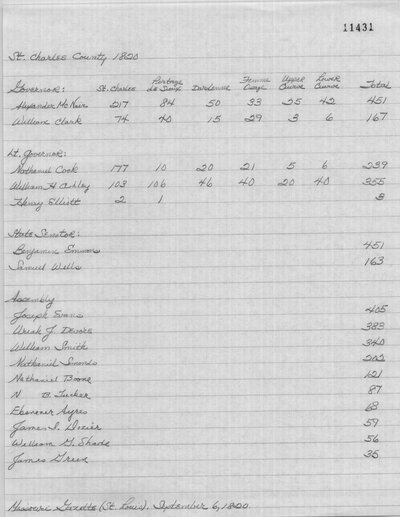 11431
St. Charles County 1820
Governor: St. Charles Portage de Sioux Dardenne Femme Osage Upper Cuivre Lower Cuivre Total
Alexander McNair 217 84 50 33 25 42 451
William Clark 74 40 15 29 3 6 167
Lt. Governor:
Nathaniel Cook 177 10 20 21 5 6 239
William H. Ashley 103 106 46 40 20 40 355
Henry Elliott 2 1 3
State Senator:
Benjamin Emmons 451
Samuel Wells 163
Assembly
Joseph Evans 405
Uriah J. Devore 383
William Smith 340
Nathaniel Simonds 202
Nathaniel Boone 121
N B. Tucker 87
Ebenezer Ayres 68
James I. 59
William G. Shade 56
James Green 35
Missouri Gazette (St. Louis), September 6, 1820.